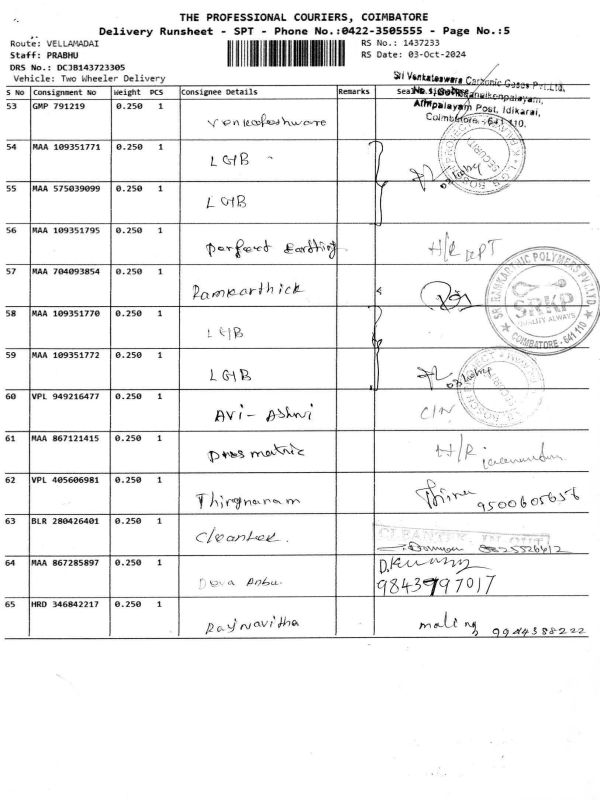 THE PROFESSIONAL COURIERS, COIMBATORE
Delivery Runsheet - SPT - Phone No.:0422-3505555 - Page No.:5
Route: VELLAMADAI
RS No.: 1437233
Staff: PRABHU
RS Date: 03-Oct-2024
DRS No.: DCJB143723305
Vehicle: Two Wheeler Delivery
Sri Venkateswara Carbonic Gases Pvt.Ltd.
Athipalayam Post, Idikarai,
Coimbatore - 641 110.
S No Consignment No Weight PCS Consignee Details Remarks
53 GMP 791219 0.250 1
54 MAA 109351771 0.250 1 LGB
55 MAA 575039099 0.250 1 LGB
56 MAA 109351795 0.250 1 perfect
57 MAA 704093854 0.250 1 Ramkarthick
SRI RAMKARTHIC POLYMERS PVT LTD
SRKP
QUALITY ALWAYS
COIMBATORE - 641 110
58 MAA 109351770 0.250 1 LGB
59 MAA 109351772 0.250 1 LGB
SECURITY
60 VPL 949216477 0.250 1 AVI - Ashwi
61 MAA 867121415 0.250 1 H/R
62 VPL 405606981 0.250 1 Thirgnanam
9500605656
63 BLR 280426401 0.250 1 Cleantek.
64 MAA 867285897 0.250 1 Deva Anbu.
9843997017
65 HRD 346842217 0.250 1
9944388222